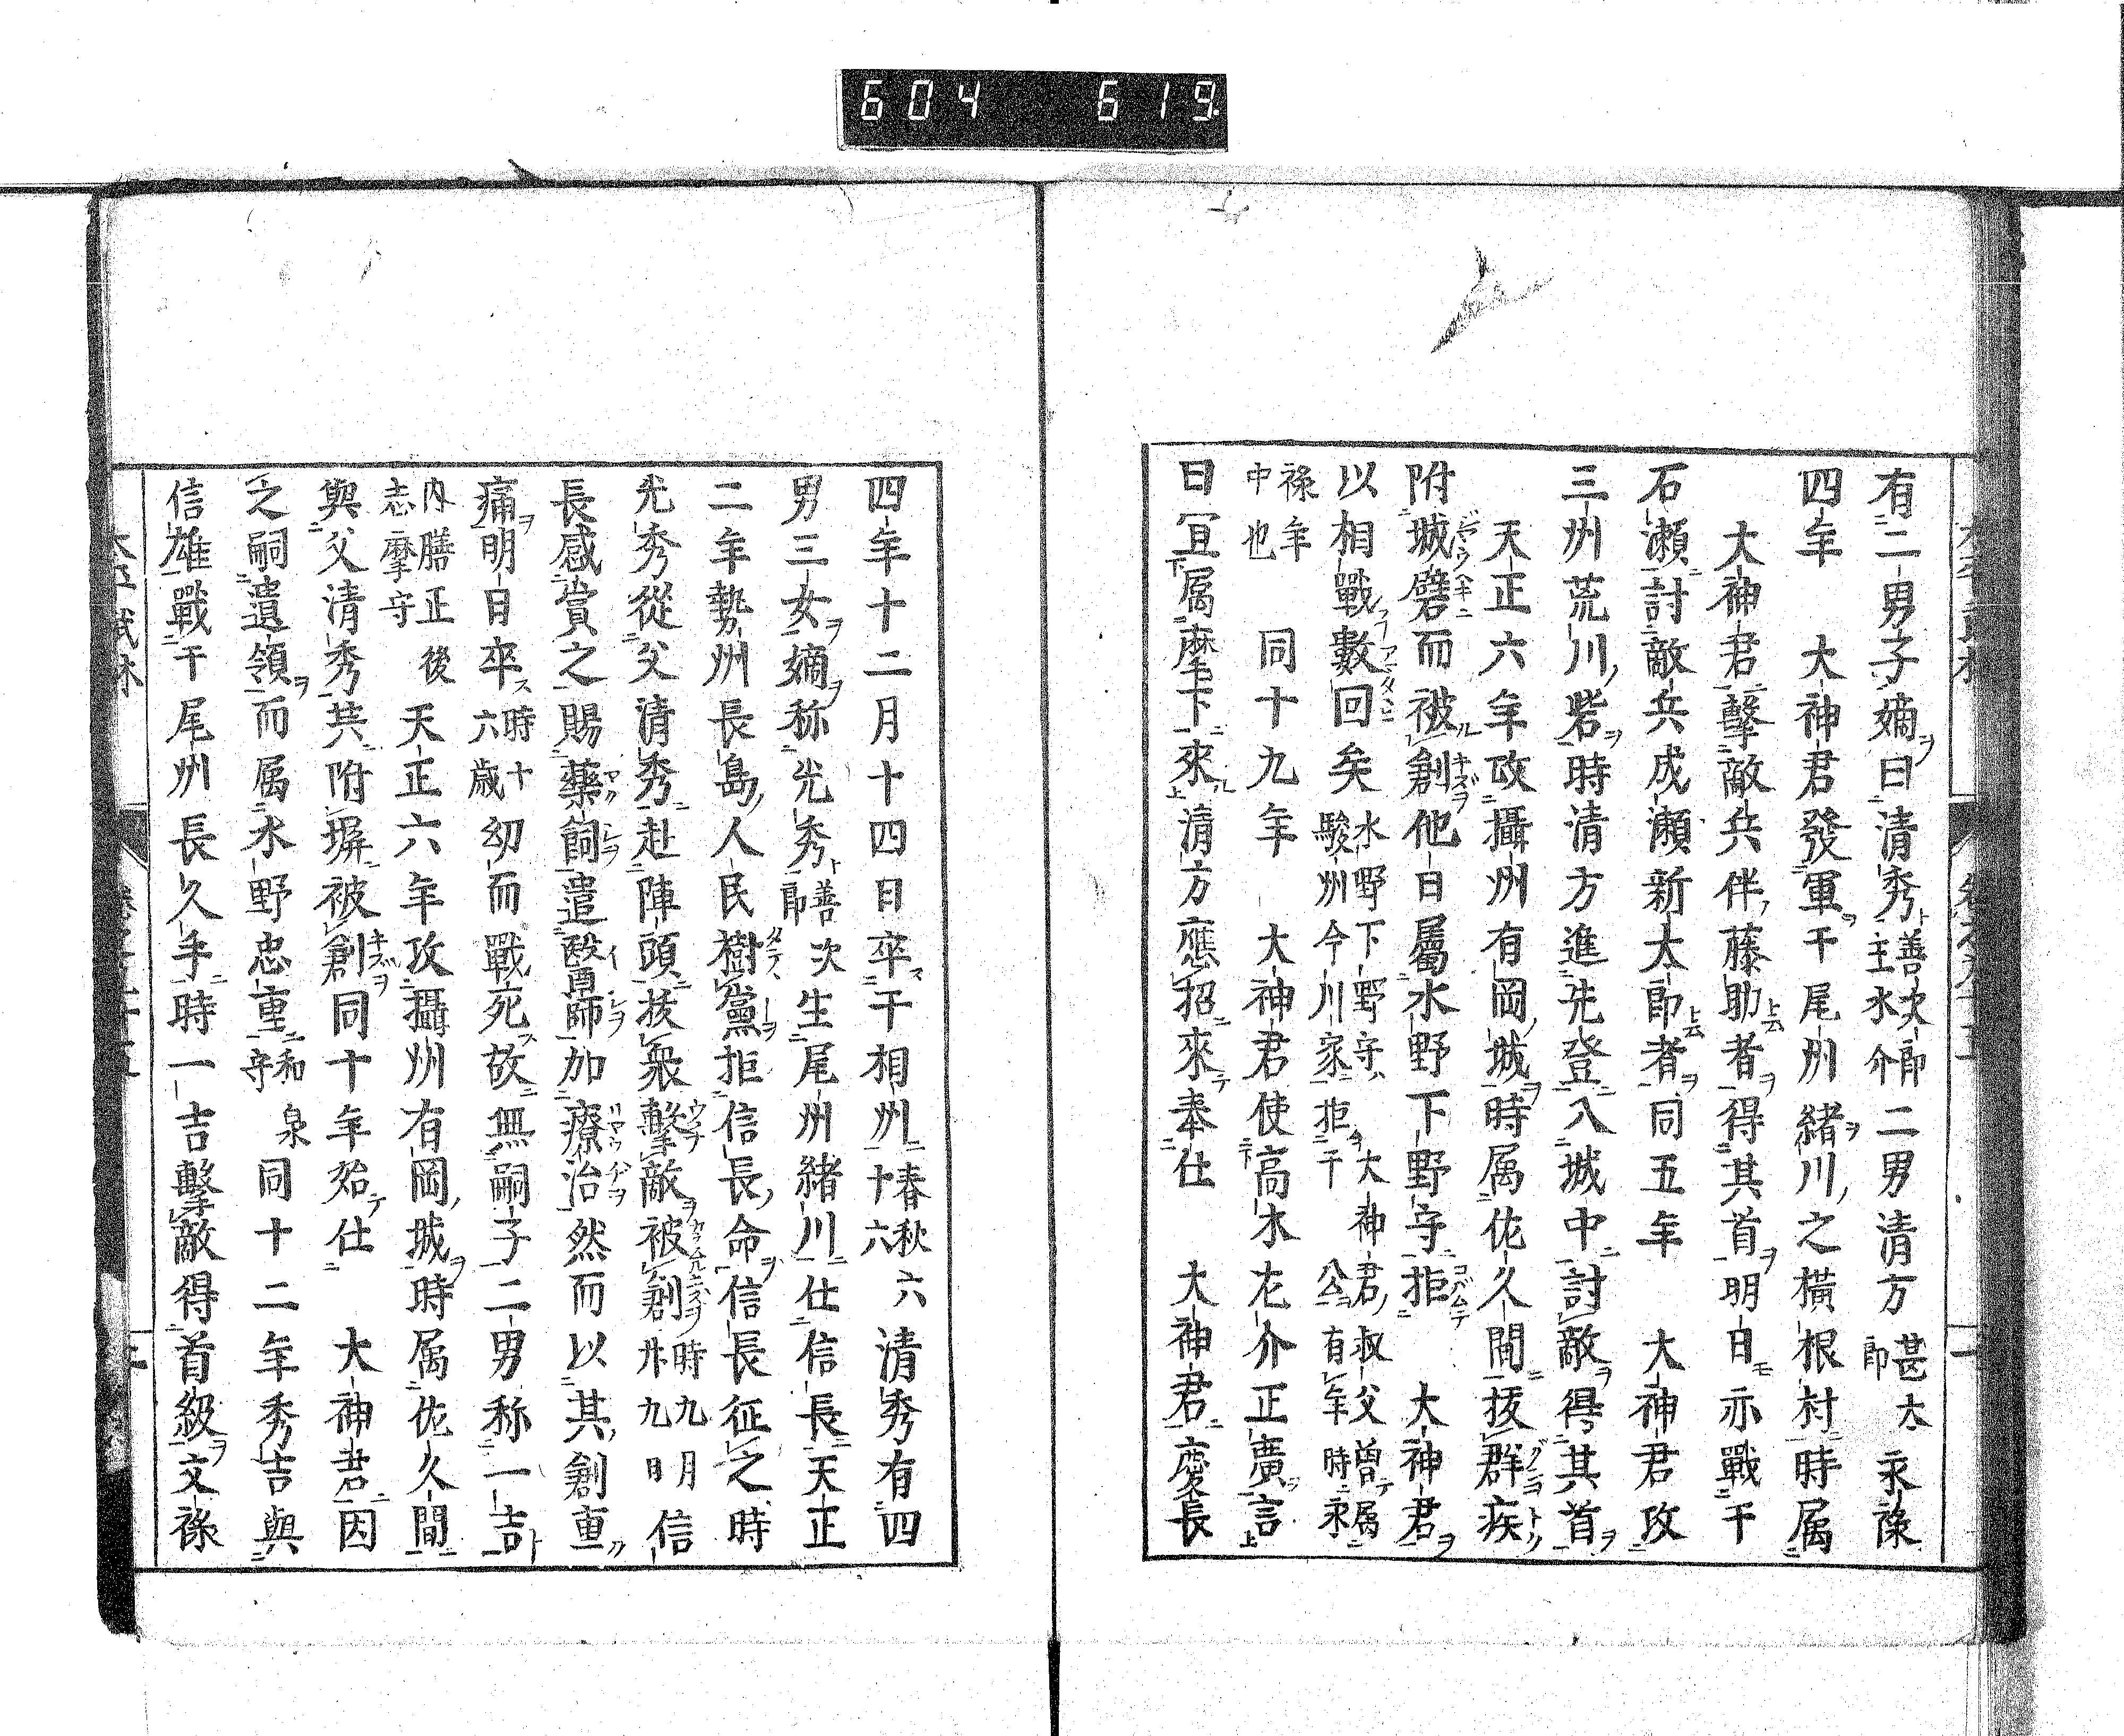 604 619
有二男子嫡曰清秀善次郎主水介二男清方甚太郎永禄
四年 大神君發軍于尾州緒川之横根村時属
大神君擊敵兵伴藤助者得其首明日亦戰于
石瀬討敵兵成瀬新大郎者同五年 大神君攻
三州荒川砦時清方進先登入城中討敵得其首
天正六年攻攝州有岡城時属佐久間抜群疾
附城礕而被創他日屬水野下野守拒 大神君
以相戰數回矣水野下野守駿州今川家拒于大神君叔父曽属公有年時永
禄年中也 同十九年 大神君使高木左介正廣言
曰宜属麾下來清方應招來奉仕 大神君慶長
四年十二月十四日卒于相州春秋六十六 清秀有四
男三女嫡称光秀善次郎生尾州緒川仕信長天正
二年勢州長島人民樹黨拒信長命信長征之時
光秀從父清秀赴陣頭抜衆擊敵被創時九月廿九日信
長感賞之賜藥飼遣醫師加療治然而以其創重
痛明日卒時十六歳幼而戰死故無嗣子二男称一吉
内膳正後志摩守 天正六年攻攝州有岡城時属佐久間
與父清秀共附塀被創同十年始仕 大神君因
之嗣遺領而属水野忠重和泉守同十二年秀吉與
信雄戰于尾州長久手時一吉擊敵得首級文禄